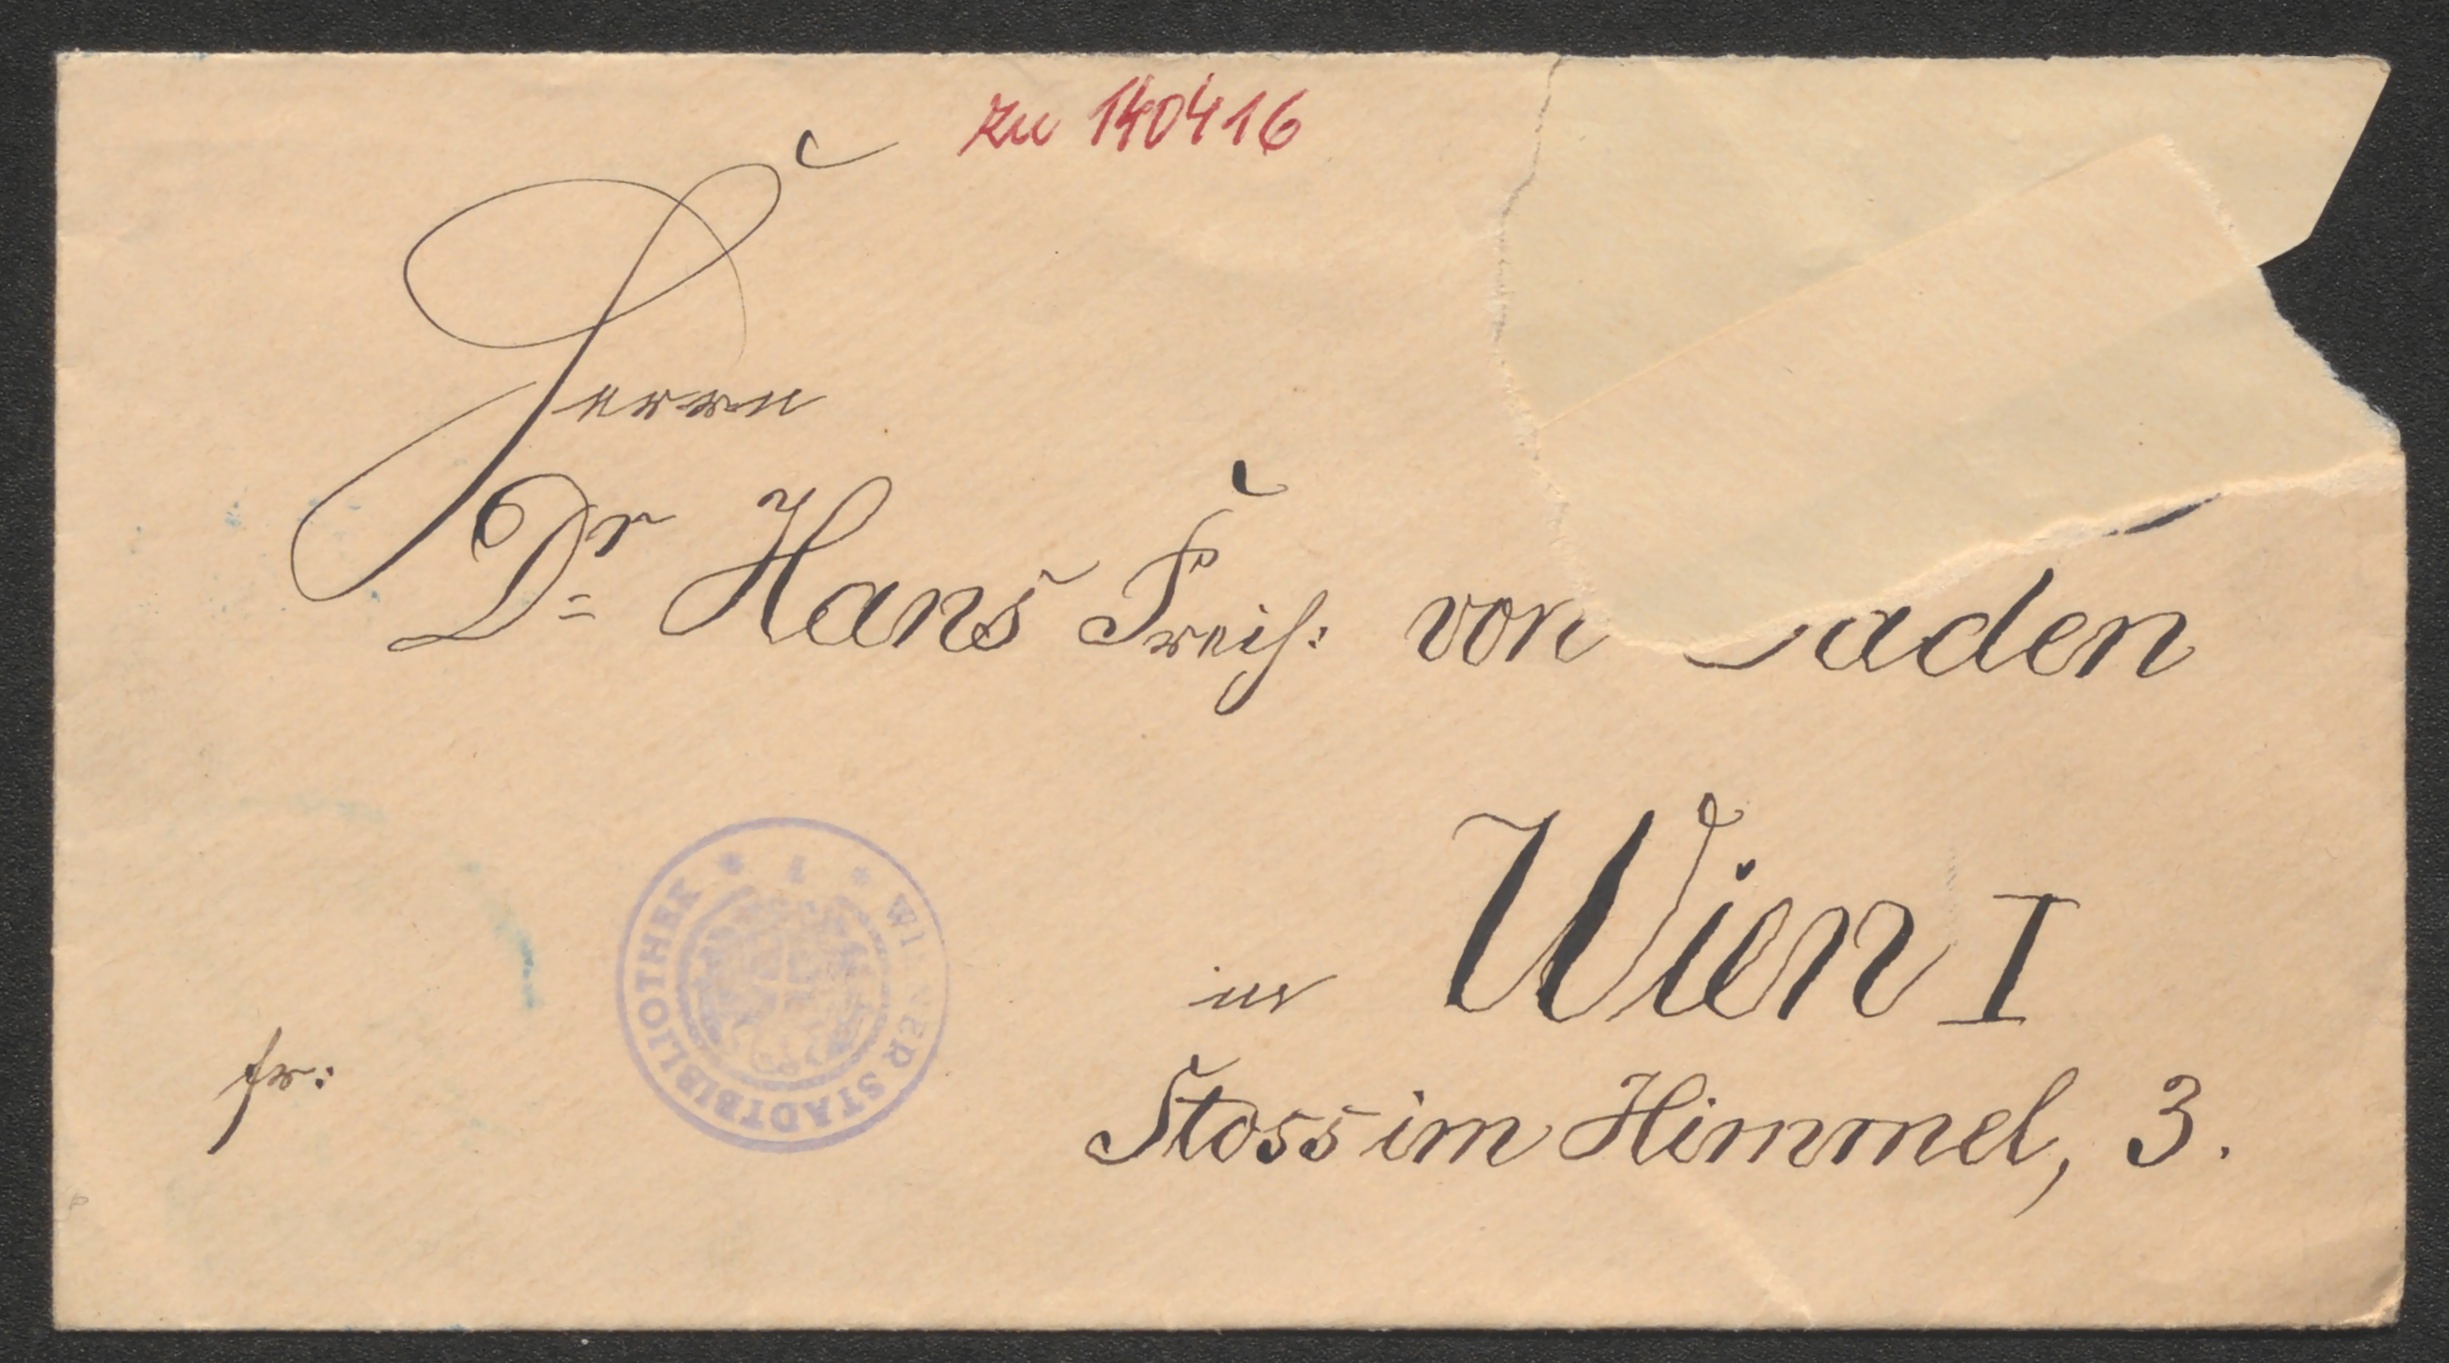 zu 140416
Herrn
Dr. Hans Freih: von aden
in Wien I
Stoss im Himmel, 3.
fr:
* WIENER STADTBIBLIOTHEK *